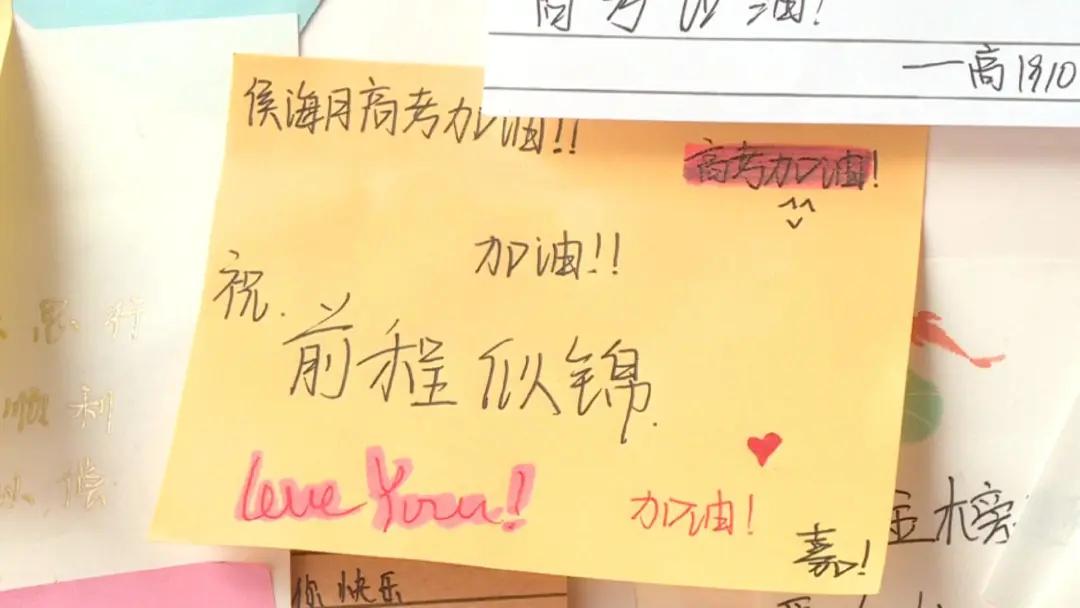 高考加油!
一高1910
侯海月高考加油!!
高考加油!
加油!!
祝.
前程似锦.
Love You!
加油!
嘉!
思行
顺利
偿
金榜
你快乐